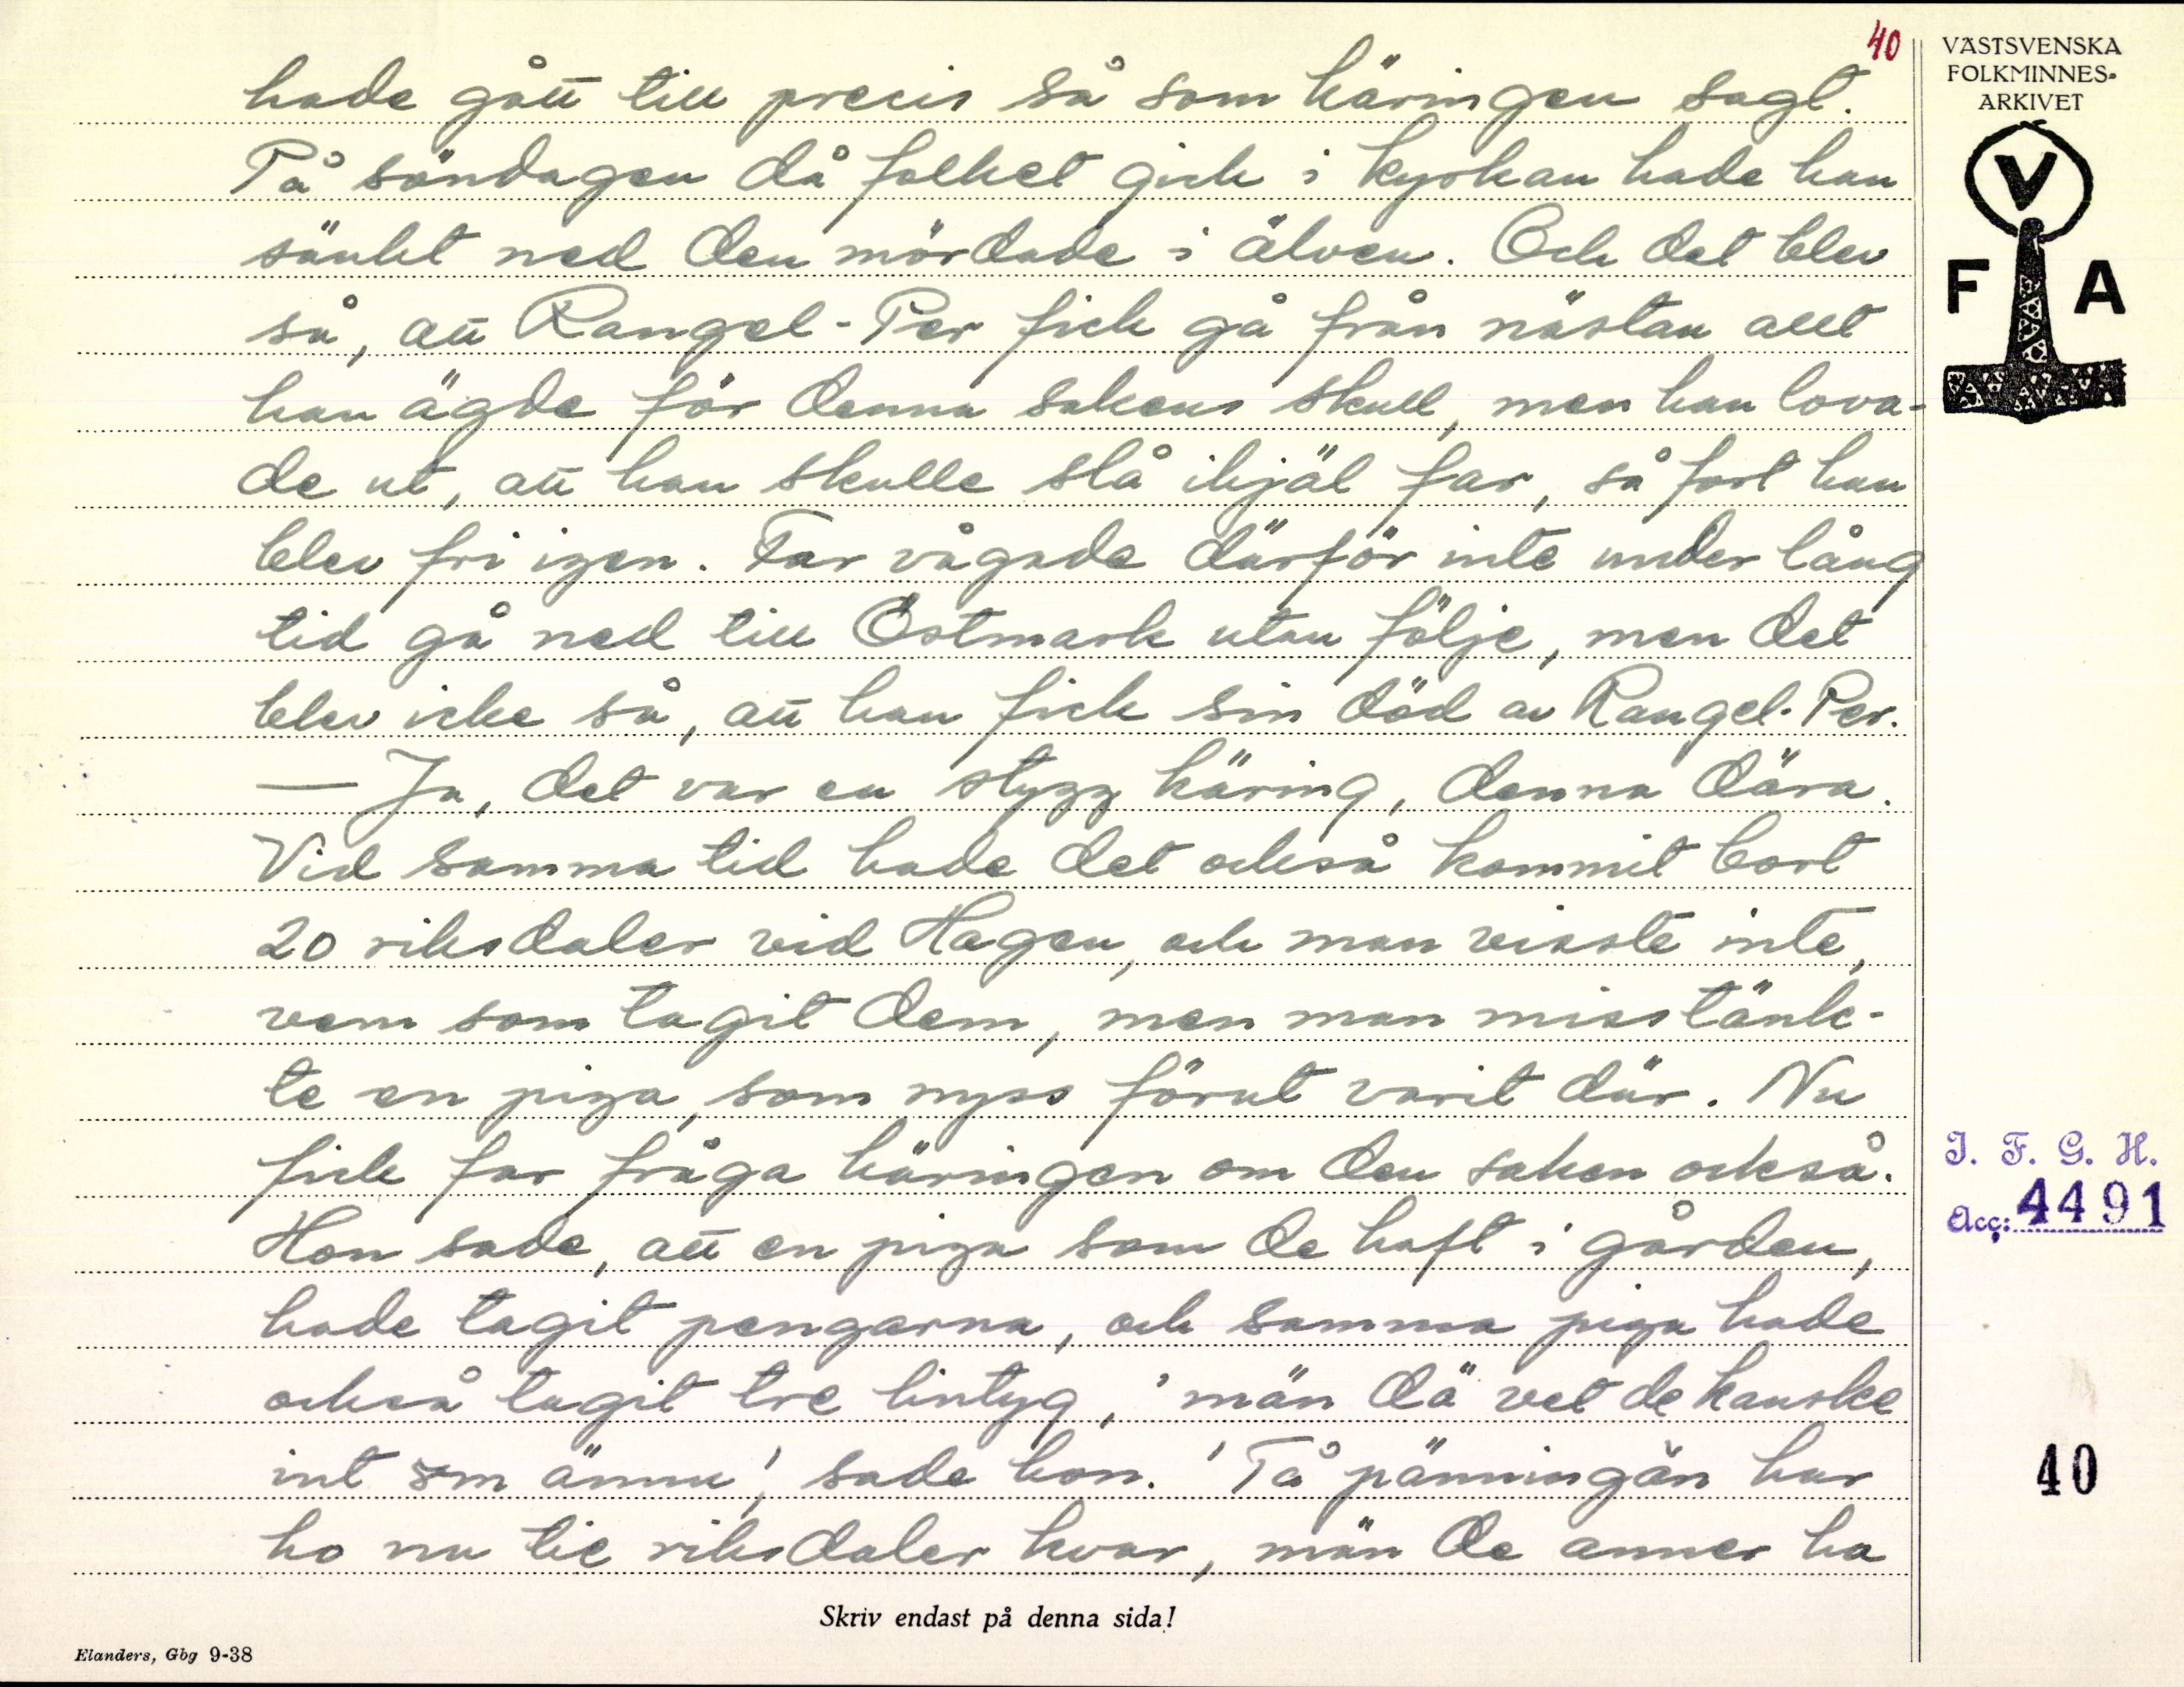 40
VÄSTSVENSKA
FOLKMINNES-
ARKIVET
V
F A
hade gått till precis så som käringen sagt.
På söndagen då folket gick i kyrkan hade han
sänkt ned den mördade i älven. Och det blev
så, att Rangel-Per fick gå från nästan allt
han ägde för denna sakens skull, men han lova-
de ut, att han skulle slå ihjäl far, så fort han
blev fri igen. Far vågade därför inte under lång
tid gå ned till Östmark utan följe, men det
blev icke så, att han fick sin död av Rangel-Per.
— Ja, det var en stygg käring, denna dära.
Vid samma tid hade det också kommit bort
20 riksdaler vid Hagen, och man visste inte,
vem som tagit dem, men man misstänk-
te en piga, som nyss förut varit där. Nu
fick far fråga käringen om den saken också.
Hon sade, att en piga som de haft i gården,
hade tagit pengarna, och samma piga hade
också tagit tre lintyg, 'män dä vet de kanske
int om ännu', sade hon. 'Tå pänningän har
ho nu tie riksdaler kvar, män de anner ha
I. F. G. H.
Acc: 4491
40
Skriv endast på denna sida!
Elanders, Gbg 9-38